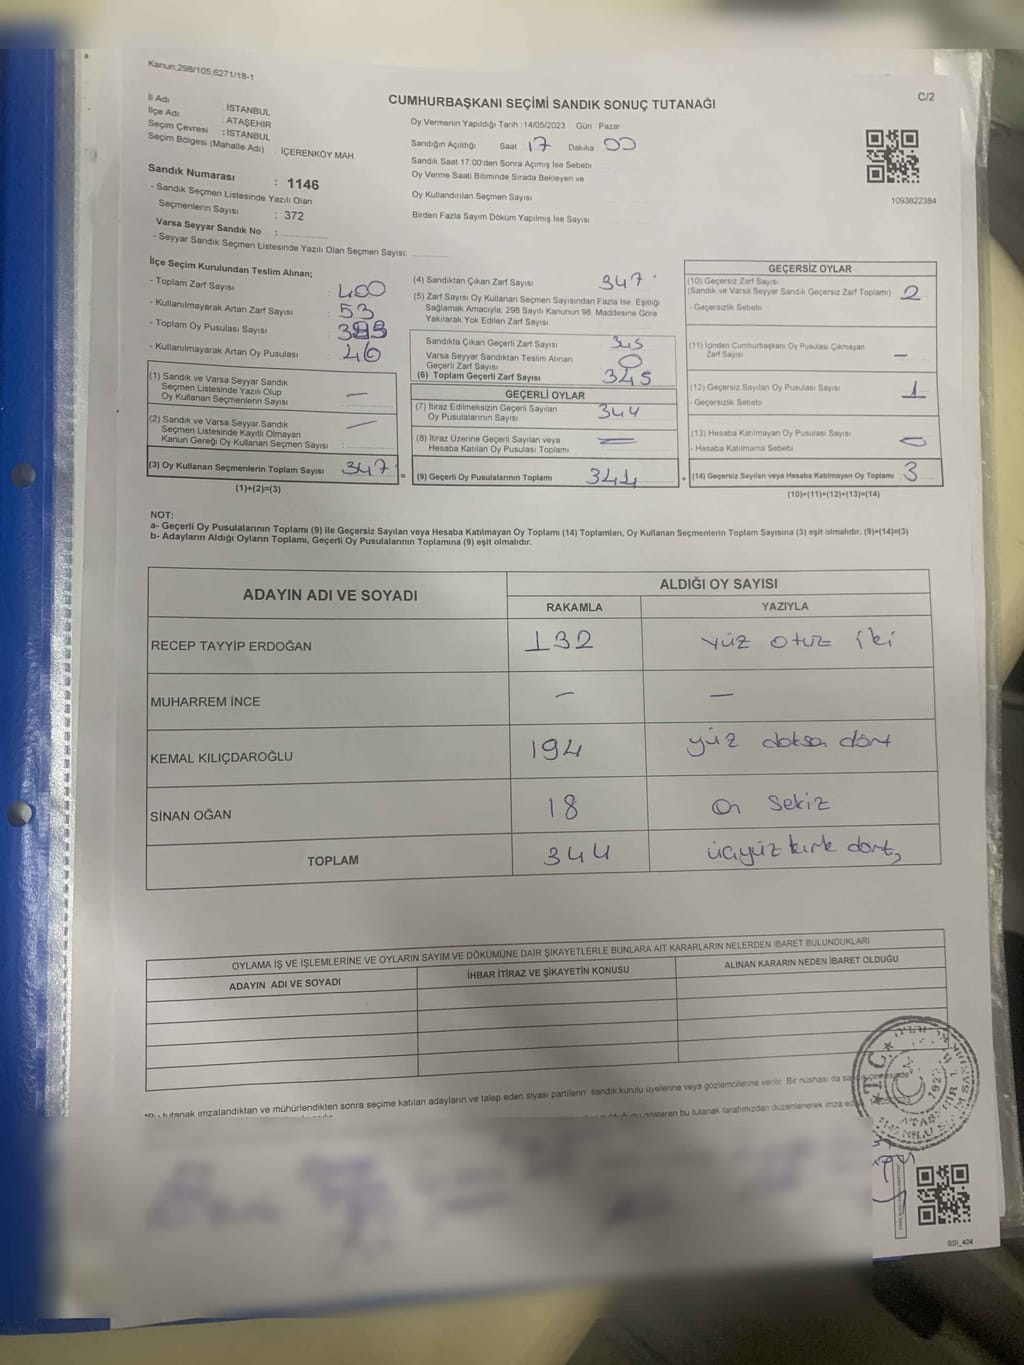 Kanun;298/105,6271/18-1
C/2
CUMHURBAŞKANI SEÇİMİ SANDIK SONUÇ TUTANAĞI
İl Adı İSTANBUL
İlçe Adı ATAŞEHİR
Seçim Çevresi :İSTANBUL
Seçim Bölgesi (Mahalle Adı) : İÇERENKÖY MAH
Sandık Numarası : 1146
- Sandık Seçmen Listesinde Yazılı Olan
Seçmenlerin Sayısı : 372
Varsa Seyyar Sandık No :
- Seyyar Sandık Seçmen Listesinde Yazılı Olan Seçmen Sayısı:
Oy Vermenin Yapıldığı Tarih :14/05/2023 Gün : Pazar
Sandığın Açıldığı Saat 17 Dakika 00
Sandık Saat 17:00'den Sonra Açımış İse Sebebi
Oy Verme Saati Bitiminde Sırada Bekleyen ve
Oy Kullandırılan Seçmen Sayısı
Birden Fazla Sayım Döküm Yapılmış İse Sayısı :
1093822384
İlçe Seçim Kurulundan Teslim Alınan;
- Toplam Zarf Sayısı : 400
- Kullanılmayarak Artan Zarf Sayısı : 53
- Toplam Oy Pusulası Sayısı :
- Kullanılmayarak Artan Oy Pusulası : 46
(1) Sandık ve Varsa Seyyar Sandık
Seçmen Listesinde Yazılı Olup
Oy Kullanan Seçmenlerin Sayısı : —
(2) Sandık ve Varsa Seyyar Sandık
Seçmen Listesinde Kayıtlı Olmayan
Kanun Gereği Oy Kullanan Seçmen Sayısı : —
(3) Oy Kullanan Seçmenlerin Toplam Sayısı 347
(1)+(2)=(3)
(4) Sandıktan Çıkan Zarf Sayısı 347
(5) Zarf Sayısı Oy Kullanan Seçmen Sayısından Fazla İse, Eşitliği
Sağlamak Amacıyla, 298 Sayılı Kanunun 98. Maddesine Göre
Yakılarak Yok Edilen Zarf Sayısı
Sandıkta Çıkan Geçerli Zarf Sayısı 345
Varsa Seyyar Sandıktan Teslim Alınan
Geçerli Zarf Sayısı 0
(6) Toplam Geçerli Zarf Sayısı 345
GEÇERLİ OYLAR
(7) İtiraz Edilmeksizin Geçerli Sayılan
Oy Pusulalarının Sayısı 344
(8) İtiraz Üzerine Geçerli Sayılan veya
Hesaba Katılan Oy Pusulası Toplamı
= (9) Geçerli Oy Pusulalarının Toplamı 344
GEÇERSİZ OYLAR
(10) Geçersiz Zarf Sayısı
(Sandık ve Varsa Seyyar Sandık Geçersiz Zarf Toplamı) 2
- Geçersizlik Sebebi
(11) İçinden Cumhurbaşkanı Oy Pusulası Çıkmayan
Zarf Sayısı —
(12) Geçersiz Sayılan Oy Pusulası Sayısı 1
- Geçersizlik Sebebi
(13) Hesaba Katılmayan Oy Pusulası Sayısı
- Hesaba Katılmama Sebebi
+ (14) Geçersiz Sayılan veya Hesaba Katılmayan Oy Toplamı 3
(10)+(11)+(12)+(13)=(14)
NOT:
a- Geçerli Oy Pusulalarının Toplamı (9) ile Geçersiz Sayılan veya Hesaba Katılmayan Oy Toplamı (14) Toplamları, Oy Kullanan Seçmenlerin Toplam Sayısına (3) eşit olmalıdır. (9)+(14)=(3)
b- Adayların Aldığı Oyların Toplamı, Geçerli Oy Pusulalarının Toplamına (9) eşit olmalıdır.
ADAYIN ADI VE SOYADI ALDIĞI OY SAYISI
RAKAMLA YAZIYLA
RECEP TAYYİP ERDOĞAN 132 yüz otuz iki
MUHARREM İNCE — —
KEMAL KILIÇDAROĞLU 194 yüz doksan dört
SİNAN OĞAN 18 on sekiz
TOPLAM 344 üçyüz kırk dört
OYLAMA İŞ VE İŞLEMLERİNE VE OYLARIN SAYIM VE DÖKÜMÜNE DAİR ŞİKAYETLERLE BUNLARA AİT KARARLARIN NELERDEN İBARET BULUNDUKLARI
ADAYIN ADI VE SOYADI İHBAR İTİRAZ VE ŞİKAYETİN KONUSU ALINAN KARARIN NEDEN İBARET OLDUĞU
*Bu tutanak imzalandıktan ve mühürlendikten sonra seçime katılan adayların ve talep eden siyasi partilerin sandık kurulu üyelerine veya gözlemcilerine verilir. Bir nüshası da
gösteren bu tutanak tarafımızdan düzenlenerek imza
T.C.
SSI_404